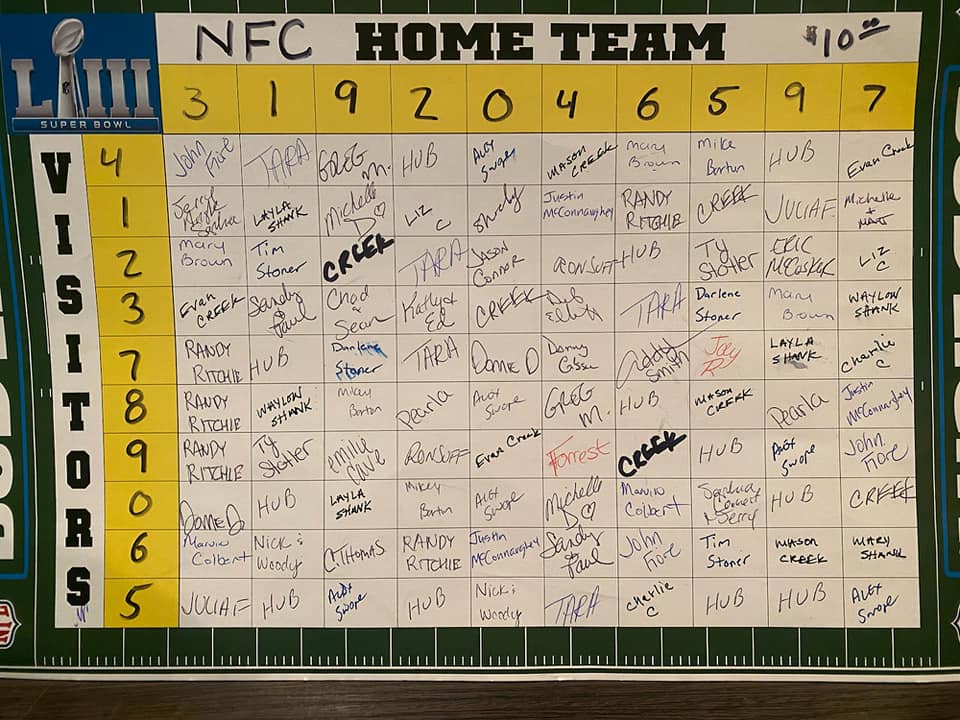 LIII
SUPER BOWL
NFC HOME TEAM $10.00
3 1 9 2 0 4 6 5 9 7
VISITORS
4 John Fiore TARA GREG M. HUB ALEX Swope MASON CREEK Mary Brown Mike Borton HUB Evan Creek
1 Jerry Sasha LAYLA SHANK Michelle D♡ LIZ C Shirdy Justin McConnaughey RANDY RITCHIE CREEK JULIA F. Michelle + MATT
2 Mary Brown Tim Stoner CREEK TARA JASON Connor RON SUFF HUB Ty Statler ERIC McCoskey LIZ C
3 Evan CREEK Sandy & Paul Chad & Sean Kathy & Ed CREEK Deb Elliott TARA Darlene Stoner Mary Brown WAYLON SHANK
7 RANDY RITCHIE HUB Darlene Stoner TARA Dome D Danny Addy Smith Jay R LAYLA SHANK Charlie C
8 RANDY RITCHIE WAYLON SHANK Mikey Borton Pearla ALEX Swope GREG M. HUB MASON CREEK Pearla Justin McConnaughey
9 RANDY RITCHIE Ty Statler emilie Cave RON SUFF Evan Creek Forrest CREEK HUB ALEX Swope John Fiore
0 Dome D HUB LAYLA SHANK Mikey Borton ALEX Swope Michelle D♡ Marvin Colbert Sasha Jerry HUB CREEK
6 Marvin Colbert Nick & Woody C. THOMAS RANDY RITCHIE Justin McConnaughey Sandy & Paul John Fiore Tim Stoner MASON CREEK MARY SHANK
5 JULIA F HUB ALEX Swope HUB Nick & Woody TARA Charlie C HUB HUB ALEX Swope